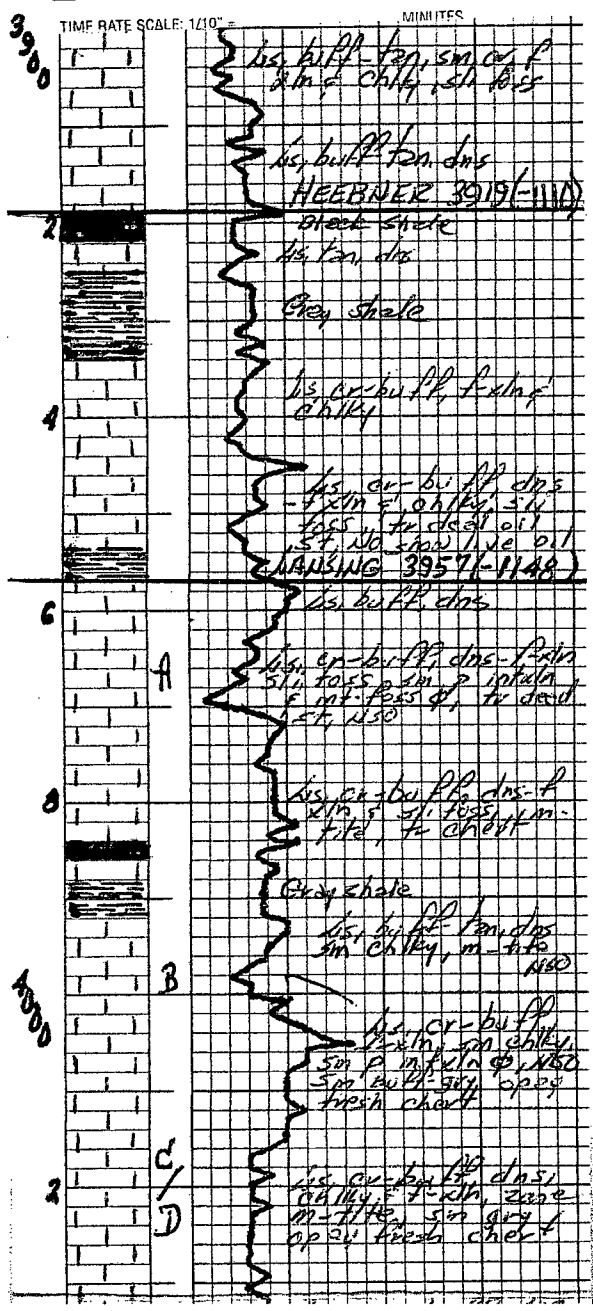 TIME RATE SCALE: 1/10" = MINUTES
3900
Ls, buff-tan, sm cr, f
xln & chlky, sli foss
Ls, buff-tan, dns
HEEBNER 3919 (-1110)
2
Black shale
Ls, tan, dns
Grey shale
Ls, cr-buff, f-xln &
chlky
4
Ls, cr-buff dns
-f xln & chlky, sly
foss, tr dead oil
st, No show live oil
LANSING 3957 (-1148)
6
Ls, buff, dns
A
Ls, cr-buff, dns-f-xln
sli foss sm p intxln
& mt-foss ϕ, tr dead
st, NSO
8
Ls, cr-buff, dns-f
xln & sli foss, m-
tite, tr chert
Gray shale
Ls, buff-tan, dns
sm chlky, m-tite
NSO
B
4000
Ls, cr-buff
f-xln, sm chlky,
sm p intxln ϕ, NSO
sm buff-gry, opaq
fresh chert
C/D
2
Ls, cr-buff dns,
chlky & f-xln,
m-tite, sm gry
opaq fresh chert